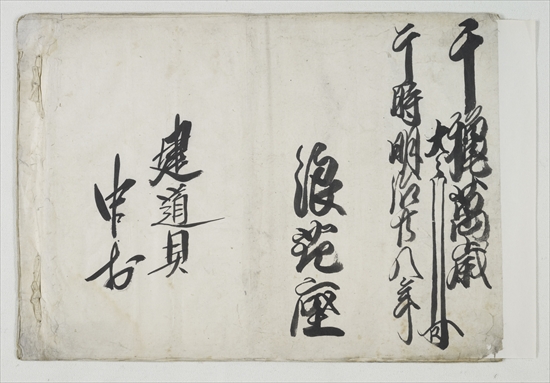 千穐萬歳
大々叶
于時明治廿八年
浪花座
建道具